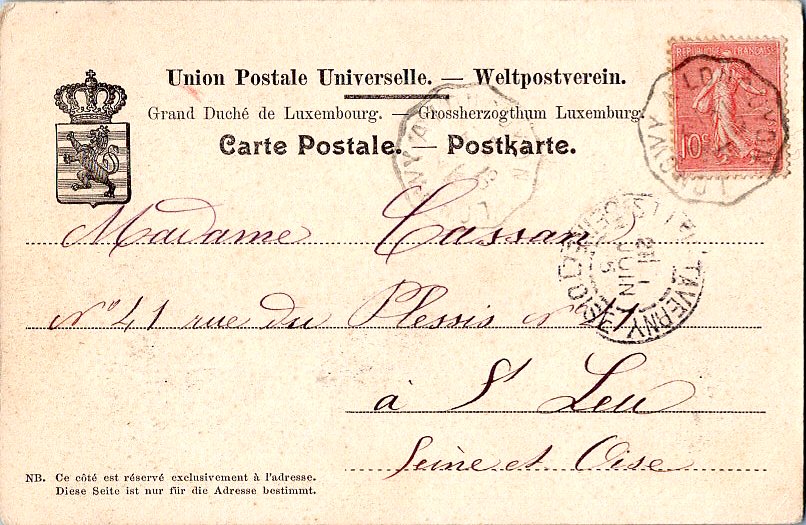 Union Postale Universelle. — Weltpostverein.
Grand Duché de Luxembourg. — Grossherzogthum Luxemburg.
Carte Postale. — Postkarte.
REPUBLIQUE FRANÇAISE
10c
LONGWY A LONGUYON
Madame Cassan
N° 41 rue du Plessis N° 41
TAVERNY
JUIN
à St Leu
Seine et Oise
NB. Ce côté est réservé exclusivement à l'adresse.
Diese Seite ist nur für die Adresse bestimmt.